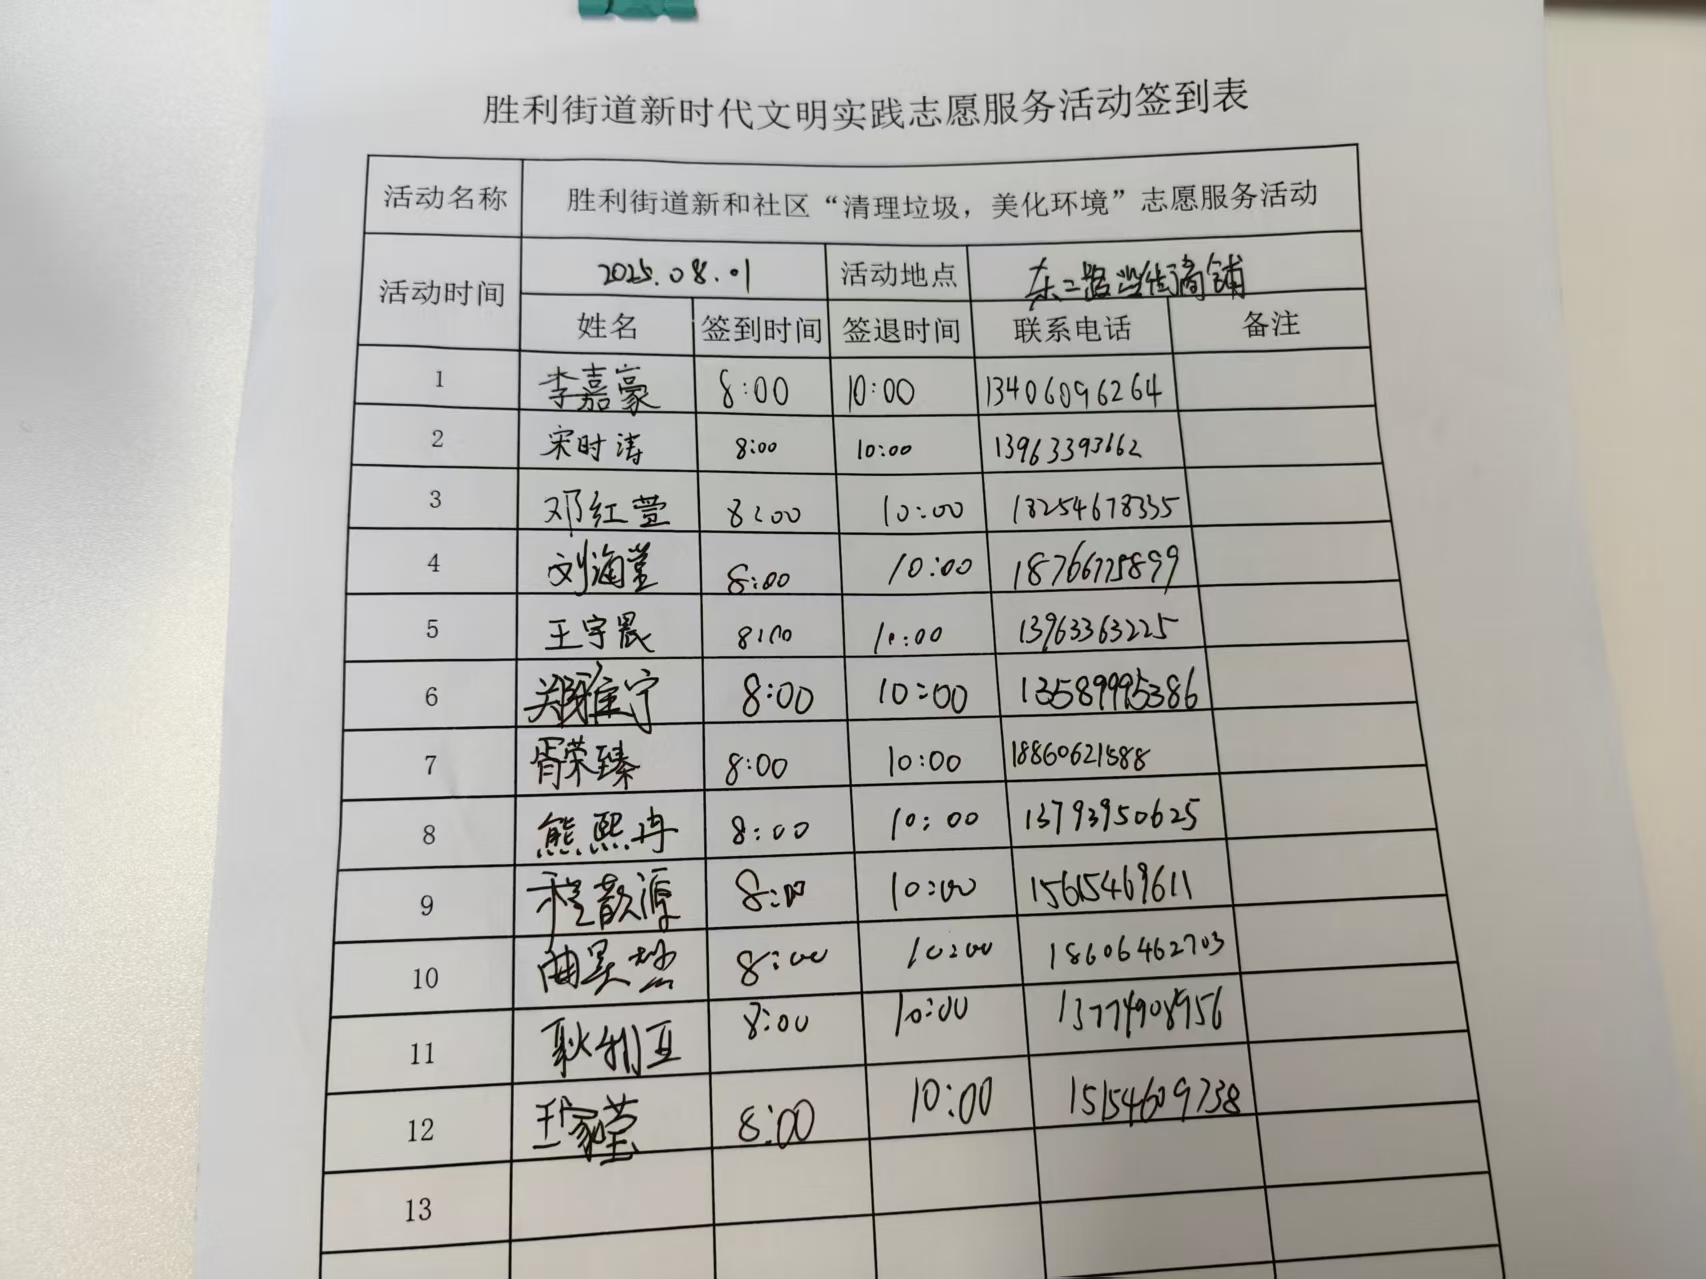 胜利街道新时代文明实践志愿服务活动签到表
活动名称 胜利街道新和社区“清理垃圾，美化环境”志愿服务活动
活动时间 2025.08.01 活动地点 东二路沿街商铺
姓名 签到时间 签退时间 联系电话 备注
1 李嘉豪 8:00 10:00 13406096264
2 宋时涛 8:00 10:00 13963393662
3 邓红萱 8:00 10:00 18254678335
4 刘海莹 8:00 10:00 18766775899
5 王宇晨 8:00 10:00 13963363225
6 郑雅宁 8:00 10:00 13589995386
7 胥荣臻 8:00 10:00 18860621588
8 熊熙冉 8:00 10:00 13793950625
9 程歆源 8:00 10:00 15615469611
10 曲昊 8:00 10:00 18606462703
11 耿 8:00 10:00 13774908956
12 王家莹 8:00 10:00 15154609738
13